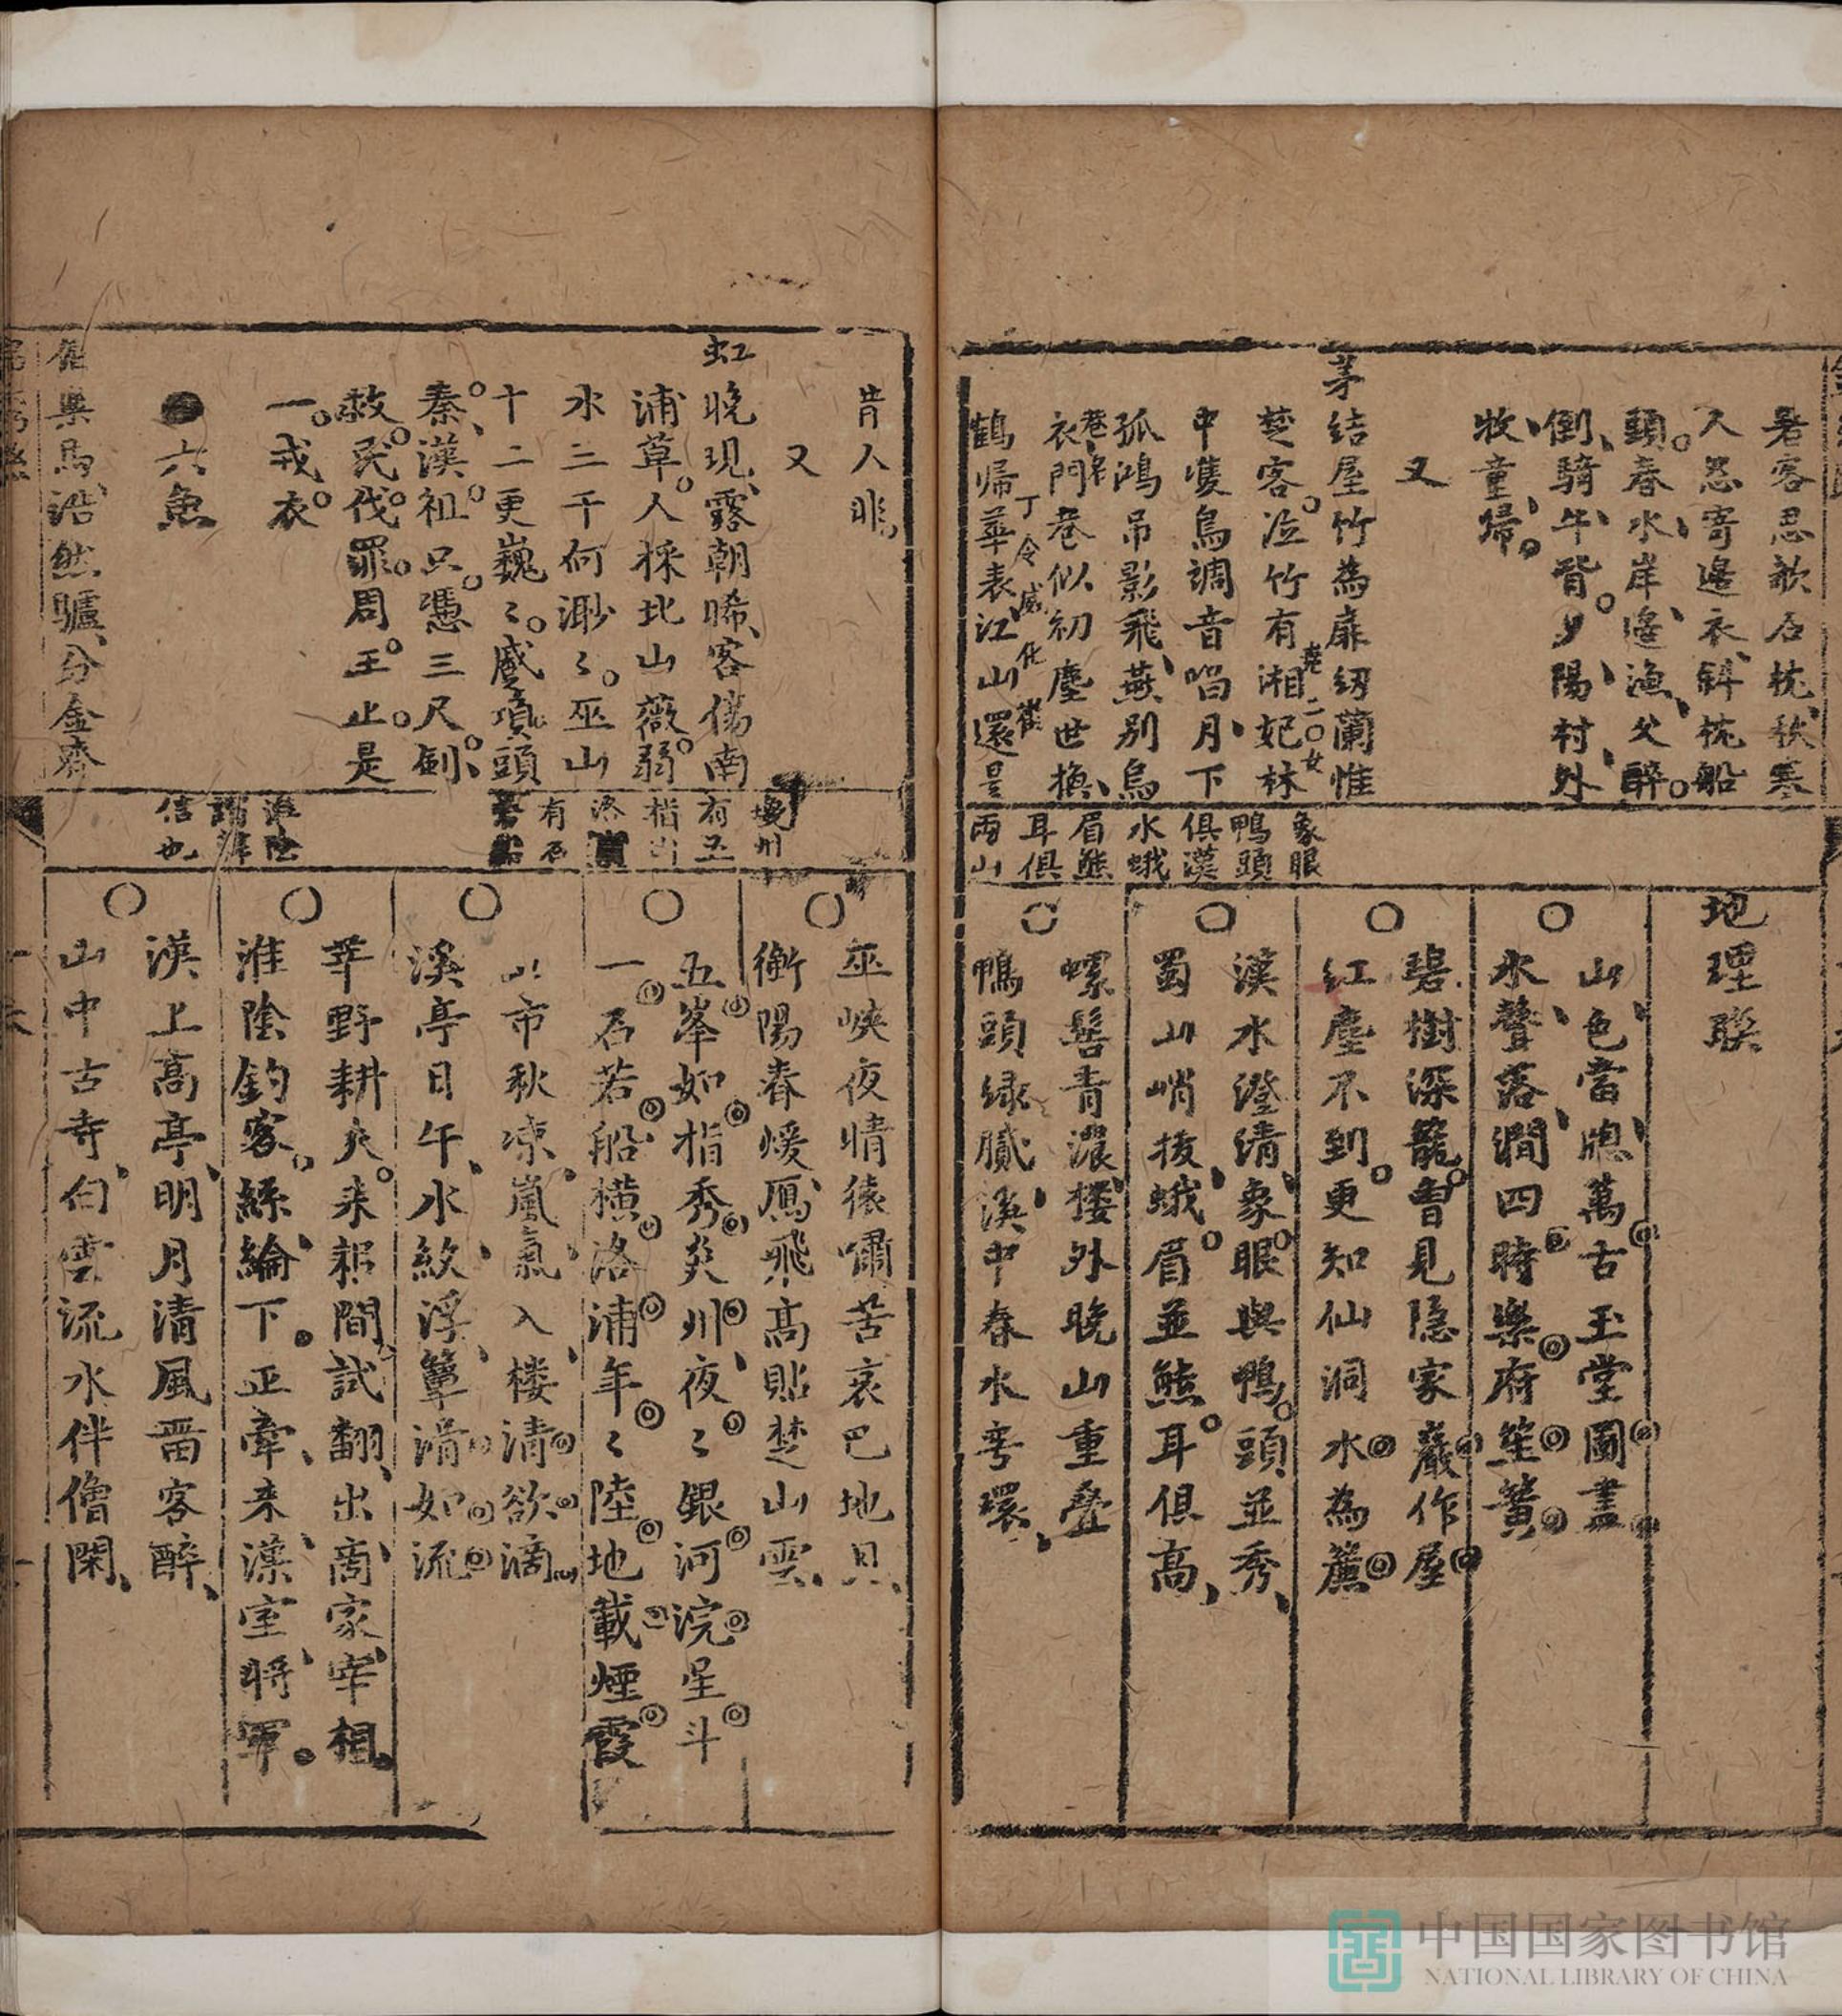 暑客思欹石枕秋寒
人忽寄邊衣斜枕船
頭春水岸邊漁父醉
倒騎牛背夕陽村外
牧童歸
又
茅結屋竹為扉紉蘭惟
楚客泣竹有湘妃林
堯二女
中隻鳥調音唱月下
孤鴻吊影飛燕別烏
巷名
衣門巷似初塵世換
丁令威化雀
鶴帰華表江山還是
象眼
鴨頭
俱漢
水蛾
眉熊
耳俱
両山
地理聯
山色當牕萬古玉堂圖畫
水聲落澗四時樂府笙簧
碧樹深籠曾見隐家巖作屋
紅塵不到更知仙洞水為簾
漢水澄清象眼與鴨頭並秀
蜀山峭拔蛾眉並熊耳俱高
螺髻青濃樓外晚山重叠
鴨頭緑膩溪中春水弯環
昔人非
又
虹晚現露朝晞客傷南
浦草人採北山薇弱
水三千何渺〻巫山
十二更巍〻感項頭
秦漢祖只憑三尺劍
救民伐罪周王止是
一戎衣
六魚
馬浩然驢分金齊
有五
指山
有石
淮陰
謂韓
信也
巫峽夜情猿嘯苦哀巴地月
衡陽春煖鳫飛高貼楚山雲
五峯如指秀炎州夜〻銀河浣星斗
一石若船横洛浦年〻陸地載煙霞
山市秋凉嵐氣入楼清欲滴
溪亭日午水紋浮簟滑如流
莘野耕夫耒耜間試翻出商家宰相
淮陰釣客絲綸下正牽来漢室將軍
漢上高亭明月清風畱客醉
山中古寺白雲流水伴僧閑
中国国家图书馆
NATIONAL LIBRARY OF CHINA